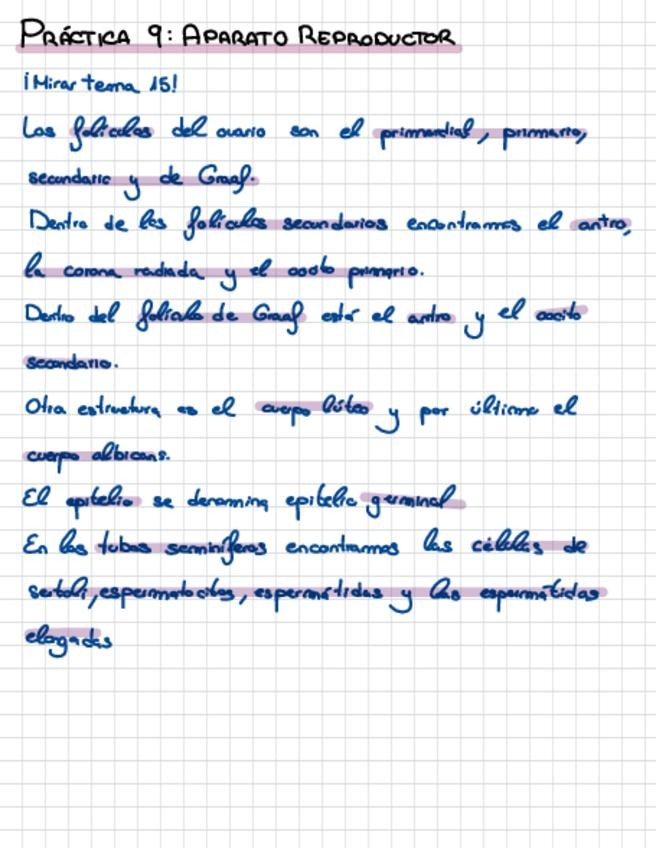 PRÁCTICA 9: APARATO REPRODUCTOR
¡Mirar tema 15!
Los folículos del ovario son el primordial, primario,
secundario y de Graaf.
Dentro de los folículos secundarios encontramos el antro,
la corona radiada y el oocito primario.
Dentro del folículo de Graaf está el antro y el oocito
secundario.
Otra estructura es el cuerpo lúteo y por último el
cuerpo albicans.
El epitelio se denomina epitelio germinal
En los tubos seminíferos encontramos las células de
sertoli, espermatocitos, espermátidas y las espermátidas
elongadas